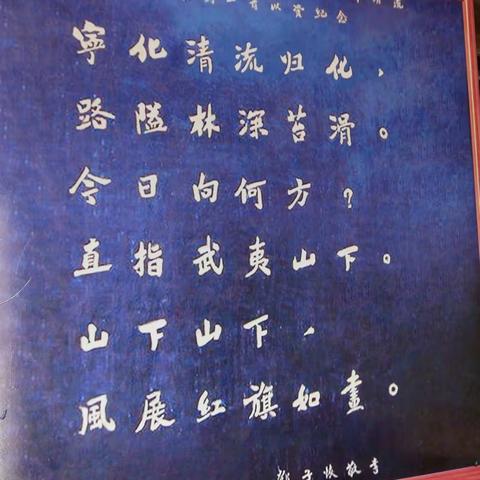 以资纪念
寧化清流归化，
路隘林深苔滑。
今日向何方？
直指武夷山下。
山下山下，
風展红旗如畫。